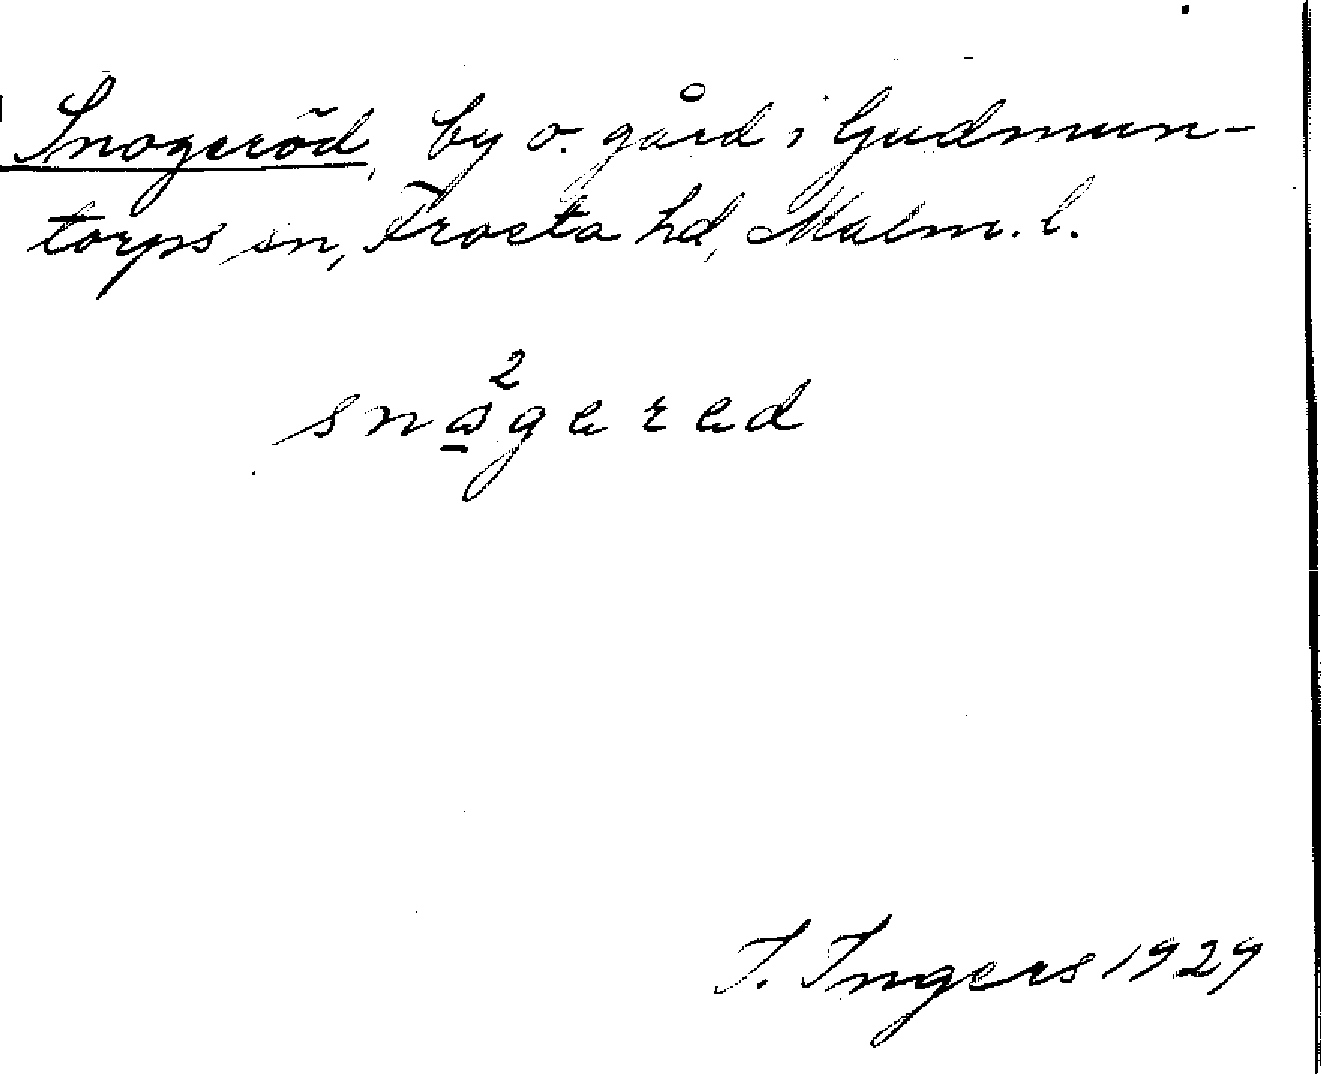 Snogeröd, by o. gård i Gudmun-
torps sn, Frosta hd, Malm. l.
2
snågered
I. Ingers 1929